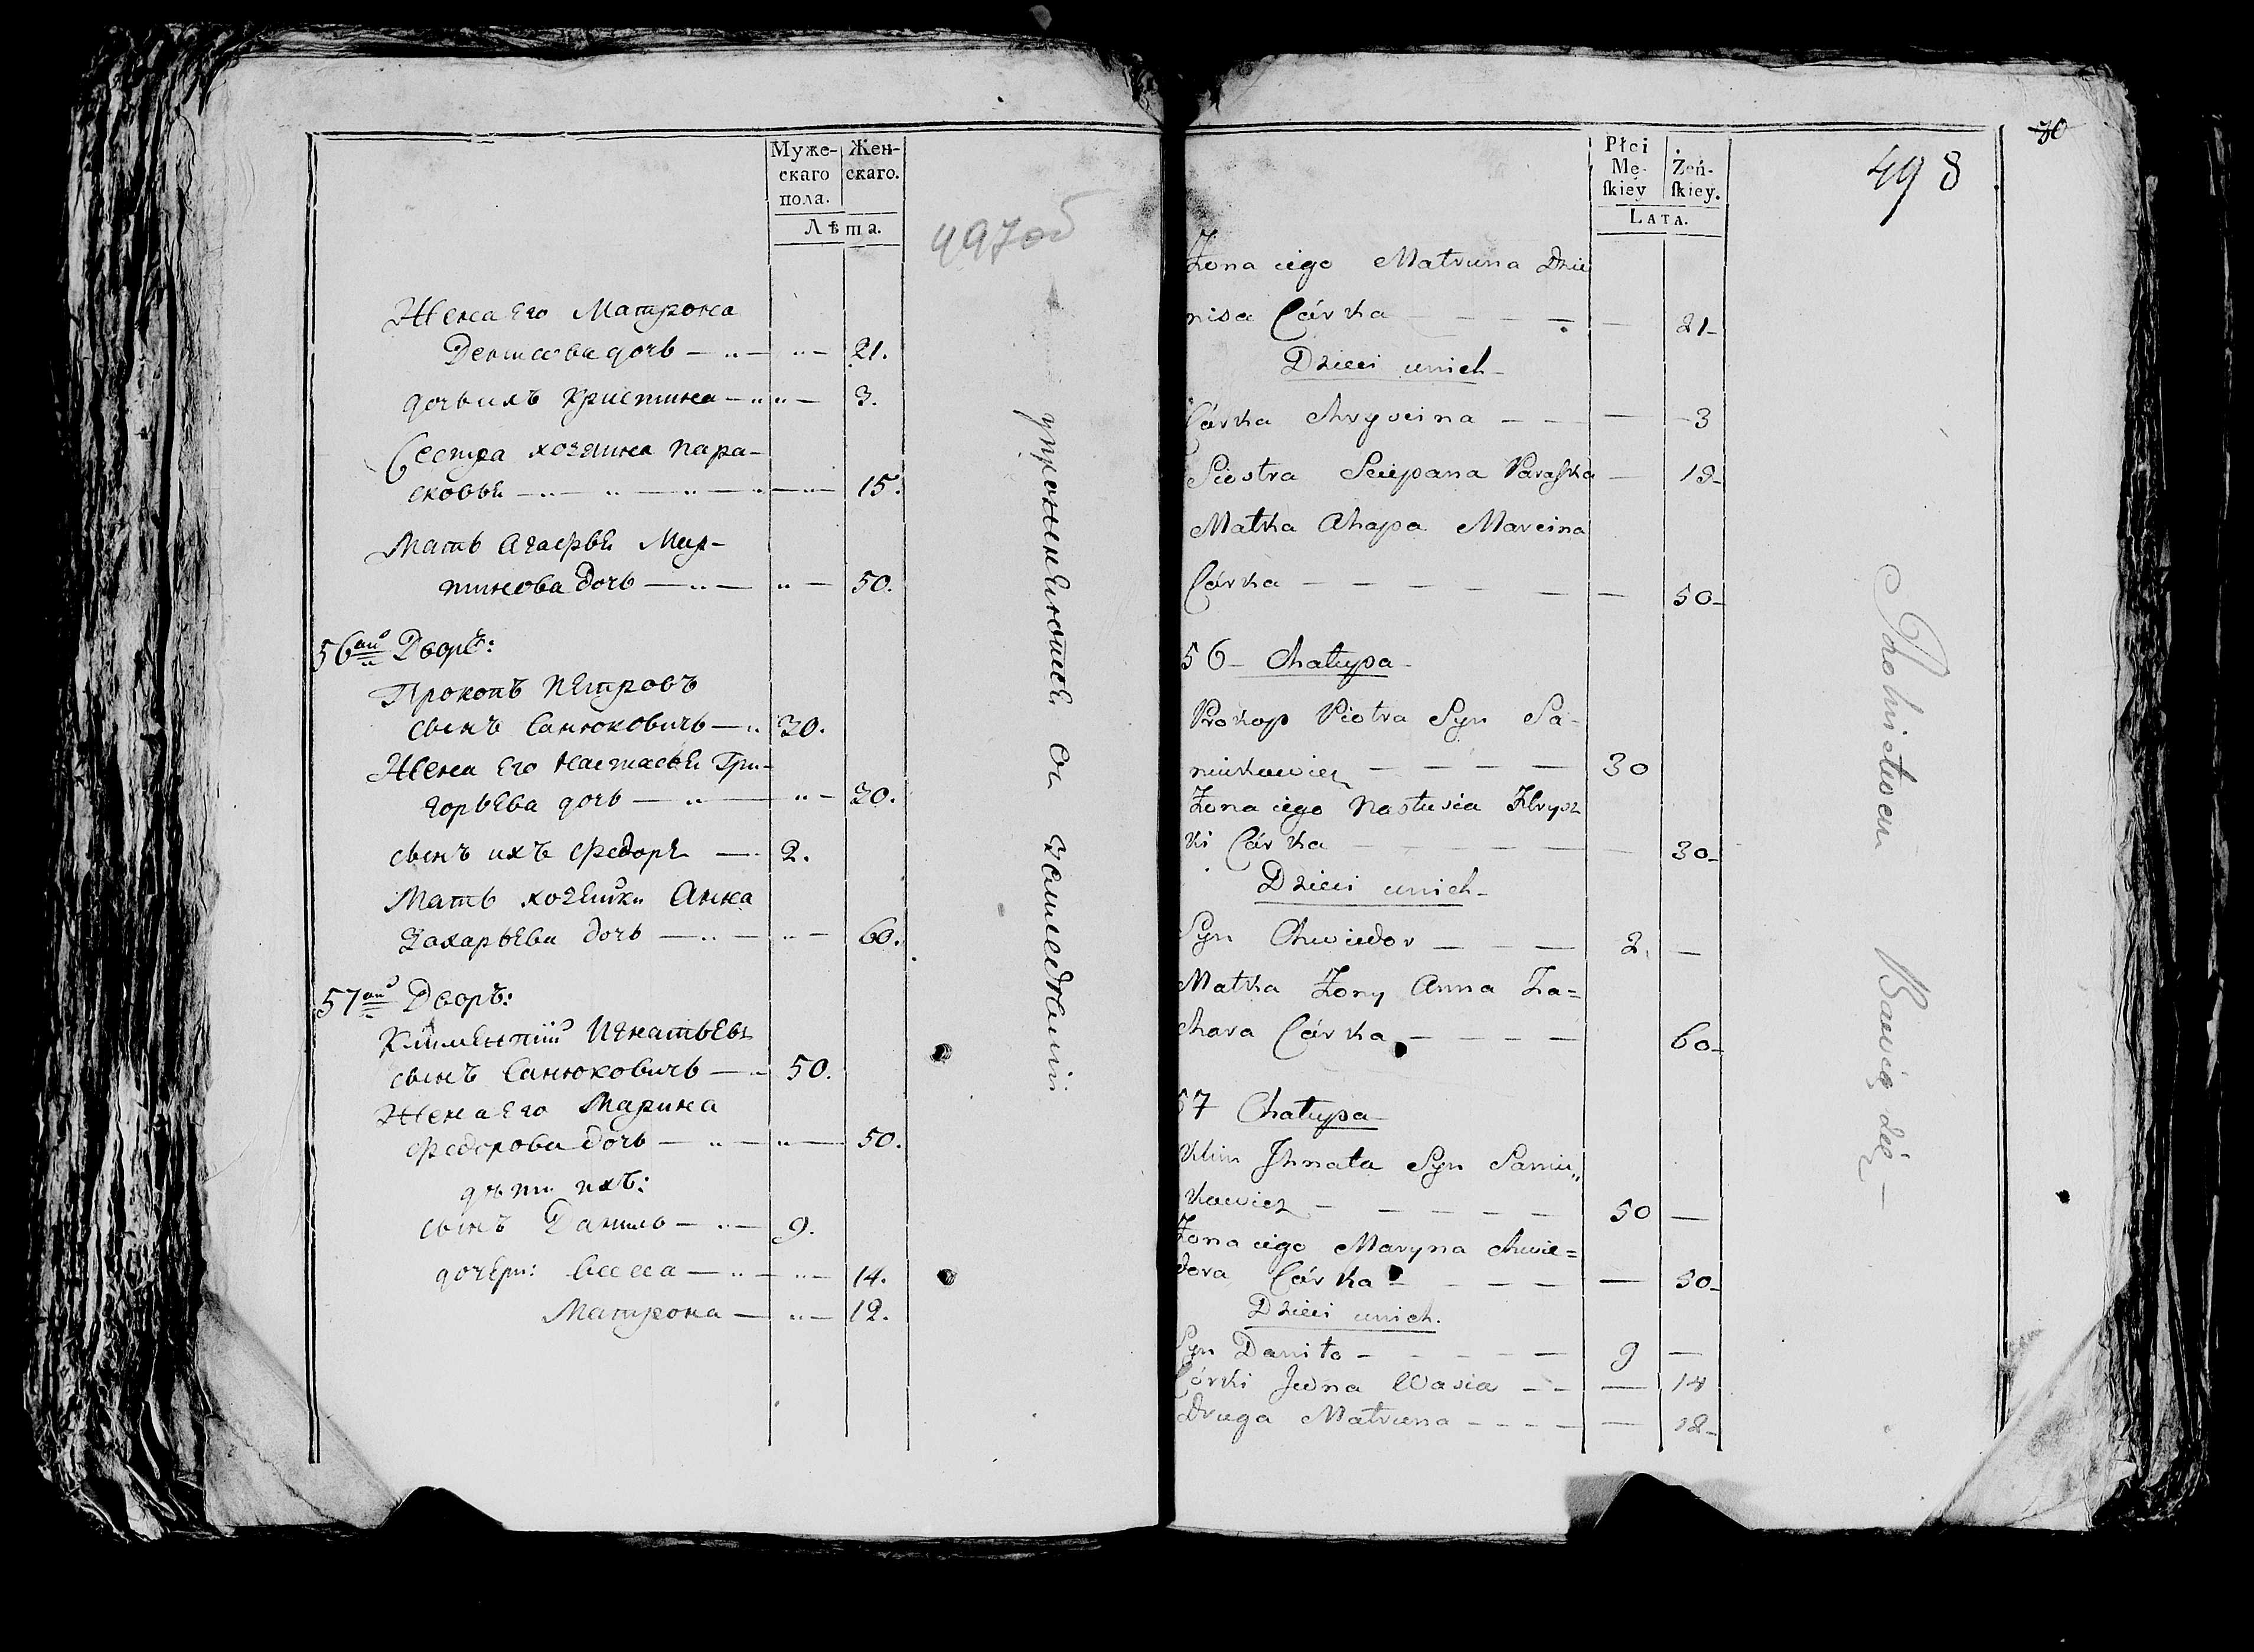 Муже-
скаго
пола.
Жен-
скаго.
Лѣта.
497об
Жена Его Матрона
Денисова дочь — 21.
дочь ихъ Кристина — 3.
Сестра хозяина Пара-
сковья — 15.
Мать Агафья Мар-
тинова дочь — 50.
56ый Дворъ:
Прокопъ Петровъ
сынъ Санюковичь — 30.
Жена Его Настасья Гри-
горьева дочь — 30.
сынъ ихъ Федоръ — 2.
Мать хозяйки Анна
Захарьева дочь — 60.
57ый Дворъ:
Климентій Игнатьевъ
сынъ Санюковичь — 50.
Жена Его Марина
Федорова дочь — 50.
дѣти ихъ:
сынъ Данило — 9.
дочери: Васса — 14.
Матрона — 12.
упрожняются въ
Płci
Mę-
ſkiey
Żeń-
ſkiey.
LATA.
498
30
Żona iego Matruna Dzie
nisa Córka — 21
Dzieci unich
Córka Chryscina — 3
Siostra Sciepana Paraſka — 15
Matka Ahapa Marcina
Córka — 50
56 Chałupa
Prokop Piotra Syn Sa-
niukowicz — 30
Żona iego Nastusia Hrysz
ki Córka — 30
Dzieci unich
Syn Chwiedor — 2
Matka Żony Anna Za=
chara Córka — 60
57 Chałupa
Klim Ihnata Syn Saniu„
kowicz — 50
Żona iego Maryna Chwie=
dora Córka — 50
Dzieci unich.
Syn Daniło — 9
Córki Jedna Wasia — 14
druga Matruna — 12
Rolnictwem Bawią się